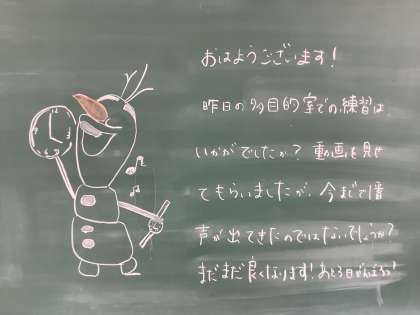 おはようございます！
昨日の多目的室での練習は
いかがでしたか？動画を見せ
てもらいましたが、今までで1番
声が出てきたのではないでしょうか？
まだまだ良くなります！あと3日がんばろう！